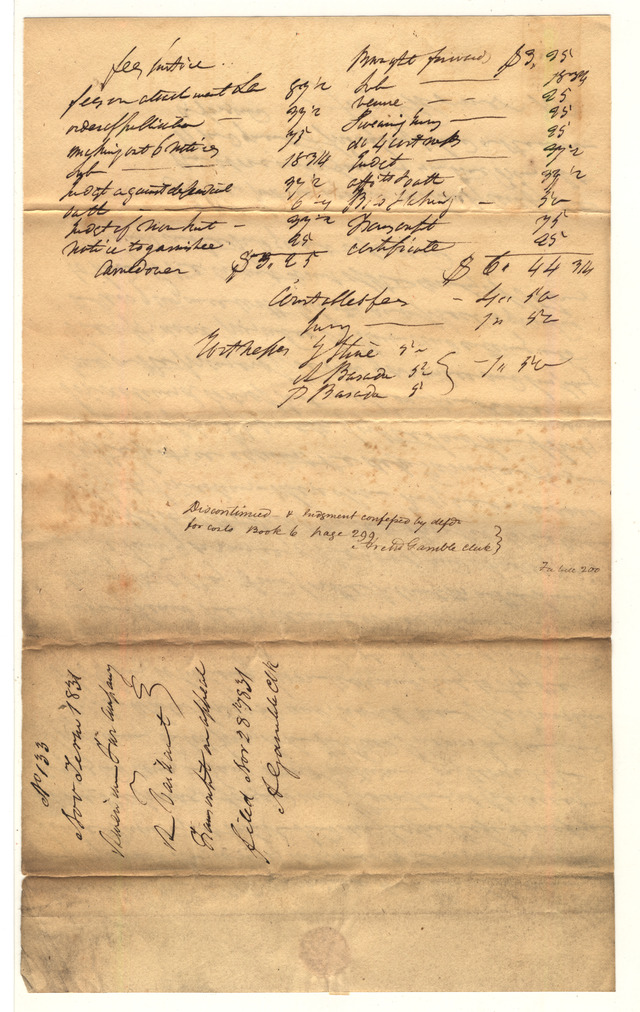 fees justice
fees on attachment &c 87 1/2
order of publication — 37 1/2
making out 6 notices 75
Sub — 18 3/4
judgt against defendant 37 1/2
oath 6 1/4
judgt of non suit — 37 1/2
notice to garnishee 25
Carried over $3. 25
Brought forward $3, 25
Sub — 18 3/4
venue — 25
Swearing jury — 25
do 4 witnesses 25
Judgt — 37 1/2
affts & oath 37 1/2
— 50
Transcript 75
certificate 25
$ 6. 44 3/4
Constables fees — 4 ,, 50
Jury — 1 ,, 50
Witnesses G Stine 50
A Basada 50 } — 1 ,, 50
P Basada 50
Discontinued & Judgment confessed by defdt
for costs Book 6 page 299
Archd Gamble clerk }
200
No 133
Nov Term 1831
American Fur Company
vs
R
Transcript on appeal
filed Nov 28th 1831
A Gamble Clk